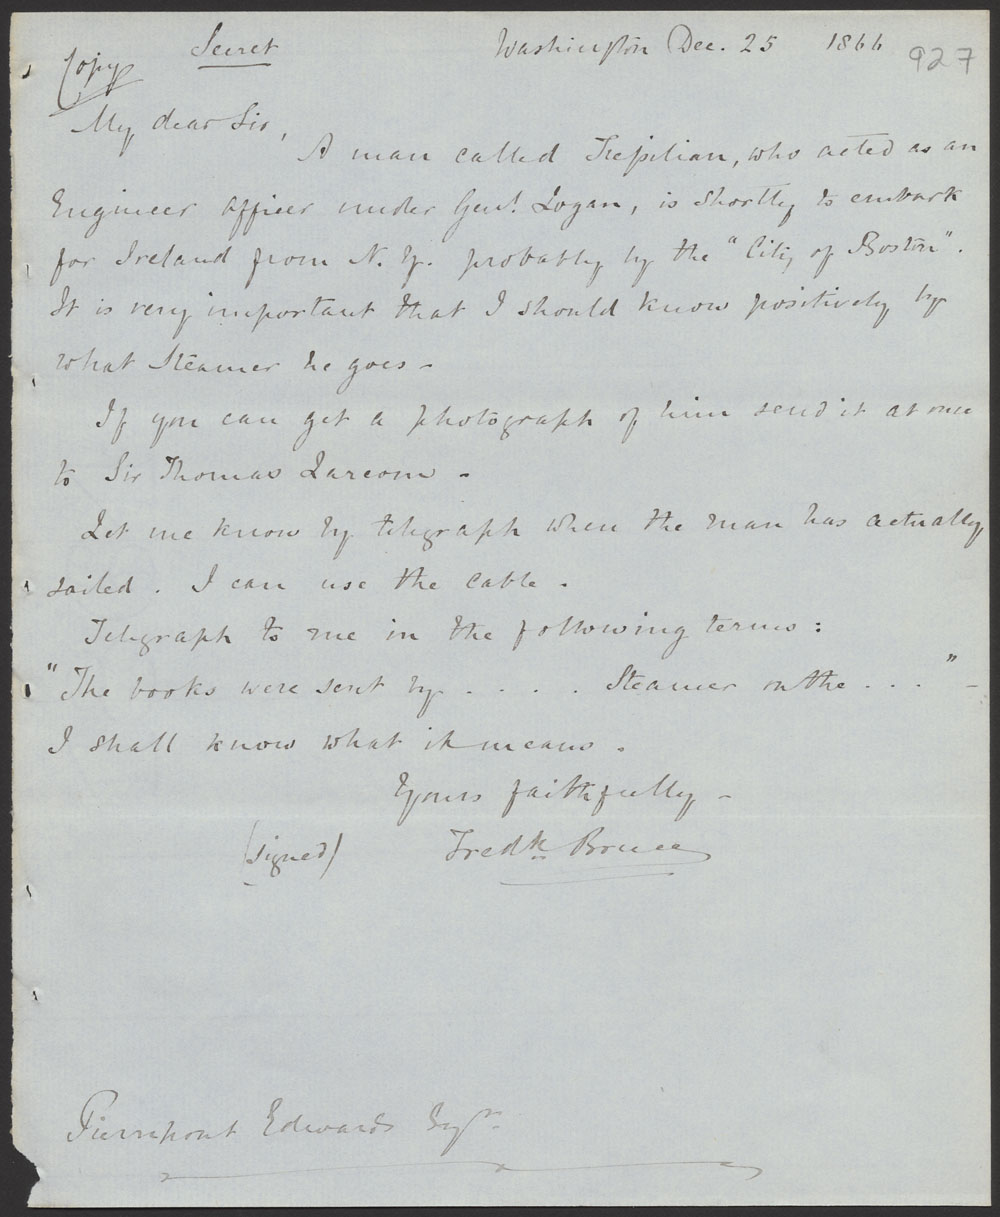 Secret Washington Dec. 25 1866 927
Copy
My dear Sir,
A man called Tresilian, who acted as an
Engineer Officer under Genl. Logan, is shortly to embark
for Ireland from N. Y. probably by the "City of Boston".
It is very important that I should know positively by
what Steamer he goes -
If you can get a photograph of him send it at once
to Sir Thomas Larcom -
Let me know by telegraph when the man has actually
sailed. I can use the Cable.
Telegraph to me in the following terms:
"The books were sent by . . . . Steamer on the . . . " -
I shall know what it means.
Yours faithfully -
(signed) Fredk. Bruce
Pierrepont Edwards Esqr.